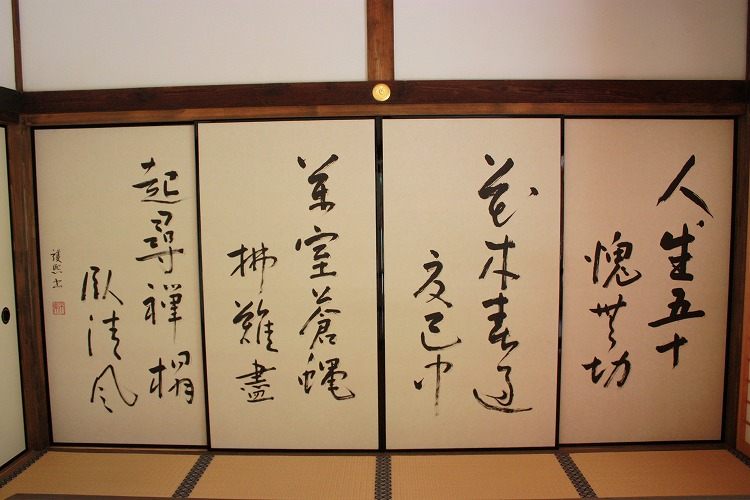 人生五十
愧無功
花木春過
夏已中
満室蒼蠅
掃難盡
起尋禪榻
臥清風
護熙書